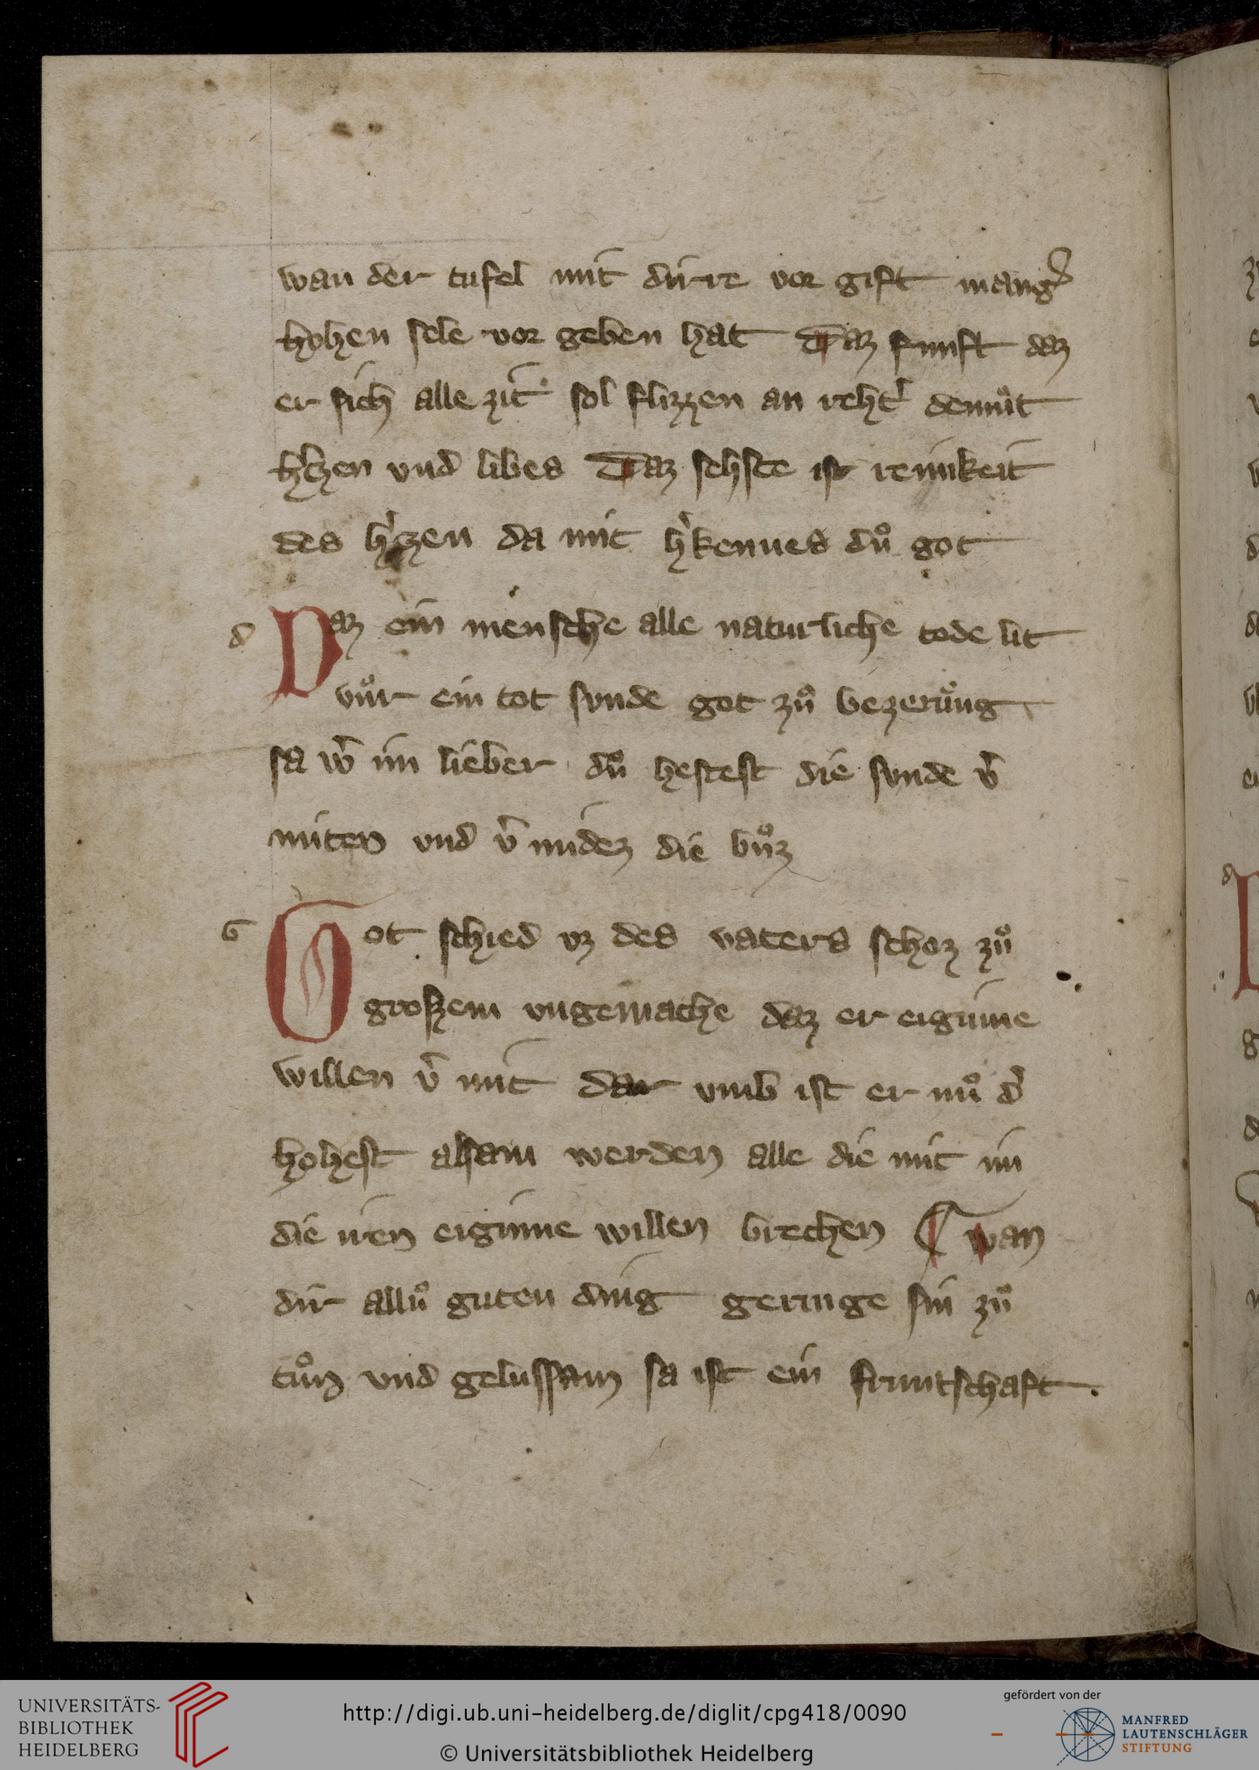 wan der tufel mit dirre vor gift mang͛
hohen sele vor geben hat Daz funft daz
er sich alle zit sol flizzen an reht͛ demuͦt
h͛tzen vnd libes Daz sehste ist reinikeit
des h͛tzen da mit h͛kennes duͦ got
d Daz ein mensche alle naturliche tode lit
vuͦr ein tot sunde got zuͦ bezeruͦng
sa w͛ im lieber duͦ hestest die sunde v͛
miten vnd v͛ midez die buͦz
G Got schied vz des vaters schoz zuͦ
groszem vngemache daz er eiginne
willen v͛ mit dar vmb ist er nuͦ d͛
hohest alsam werden alle die mit im
die iren eiginne willen brechen ¶ wan
dir alluͦ guten ding geringe sin zuͦ
tuͦn vnd gelussam sa ist ein fruntschaft.
UNIVERSITÄTS-
BIBLIOTHEK
HEIDELBERG
http://digi.ub.uni-heidelberg.de/diglit/cpg418/0090
© Universitätsbibliothek Heidelberg
gefördert von der
MANFRED
LAUTENSCHLÄGER
STIFTUNG